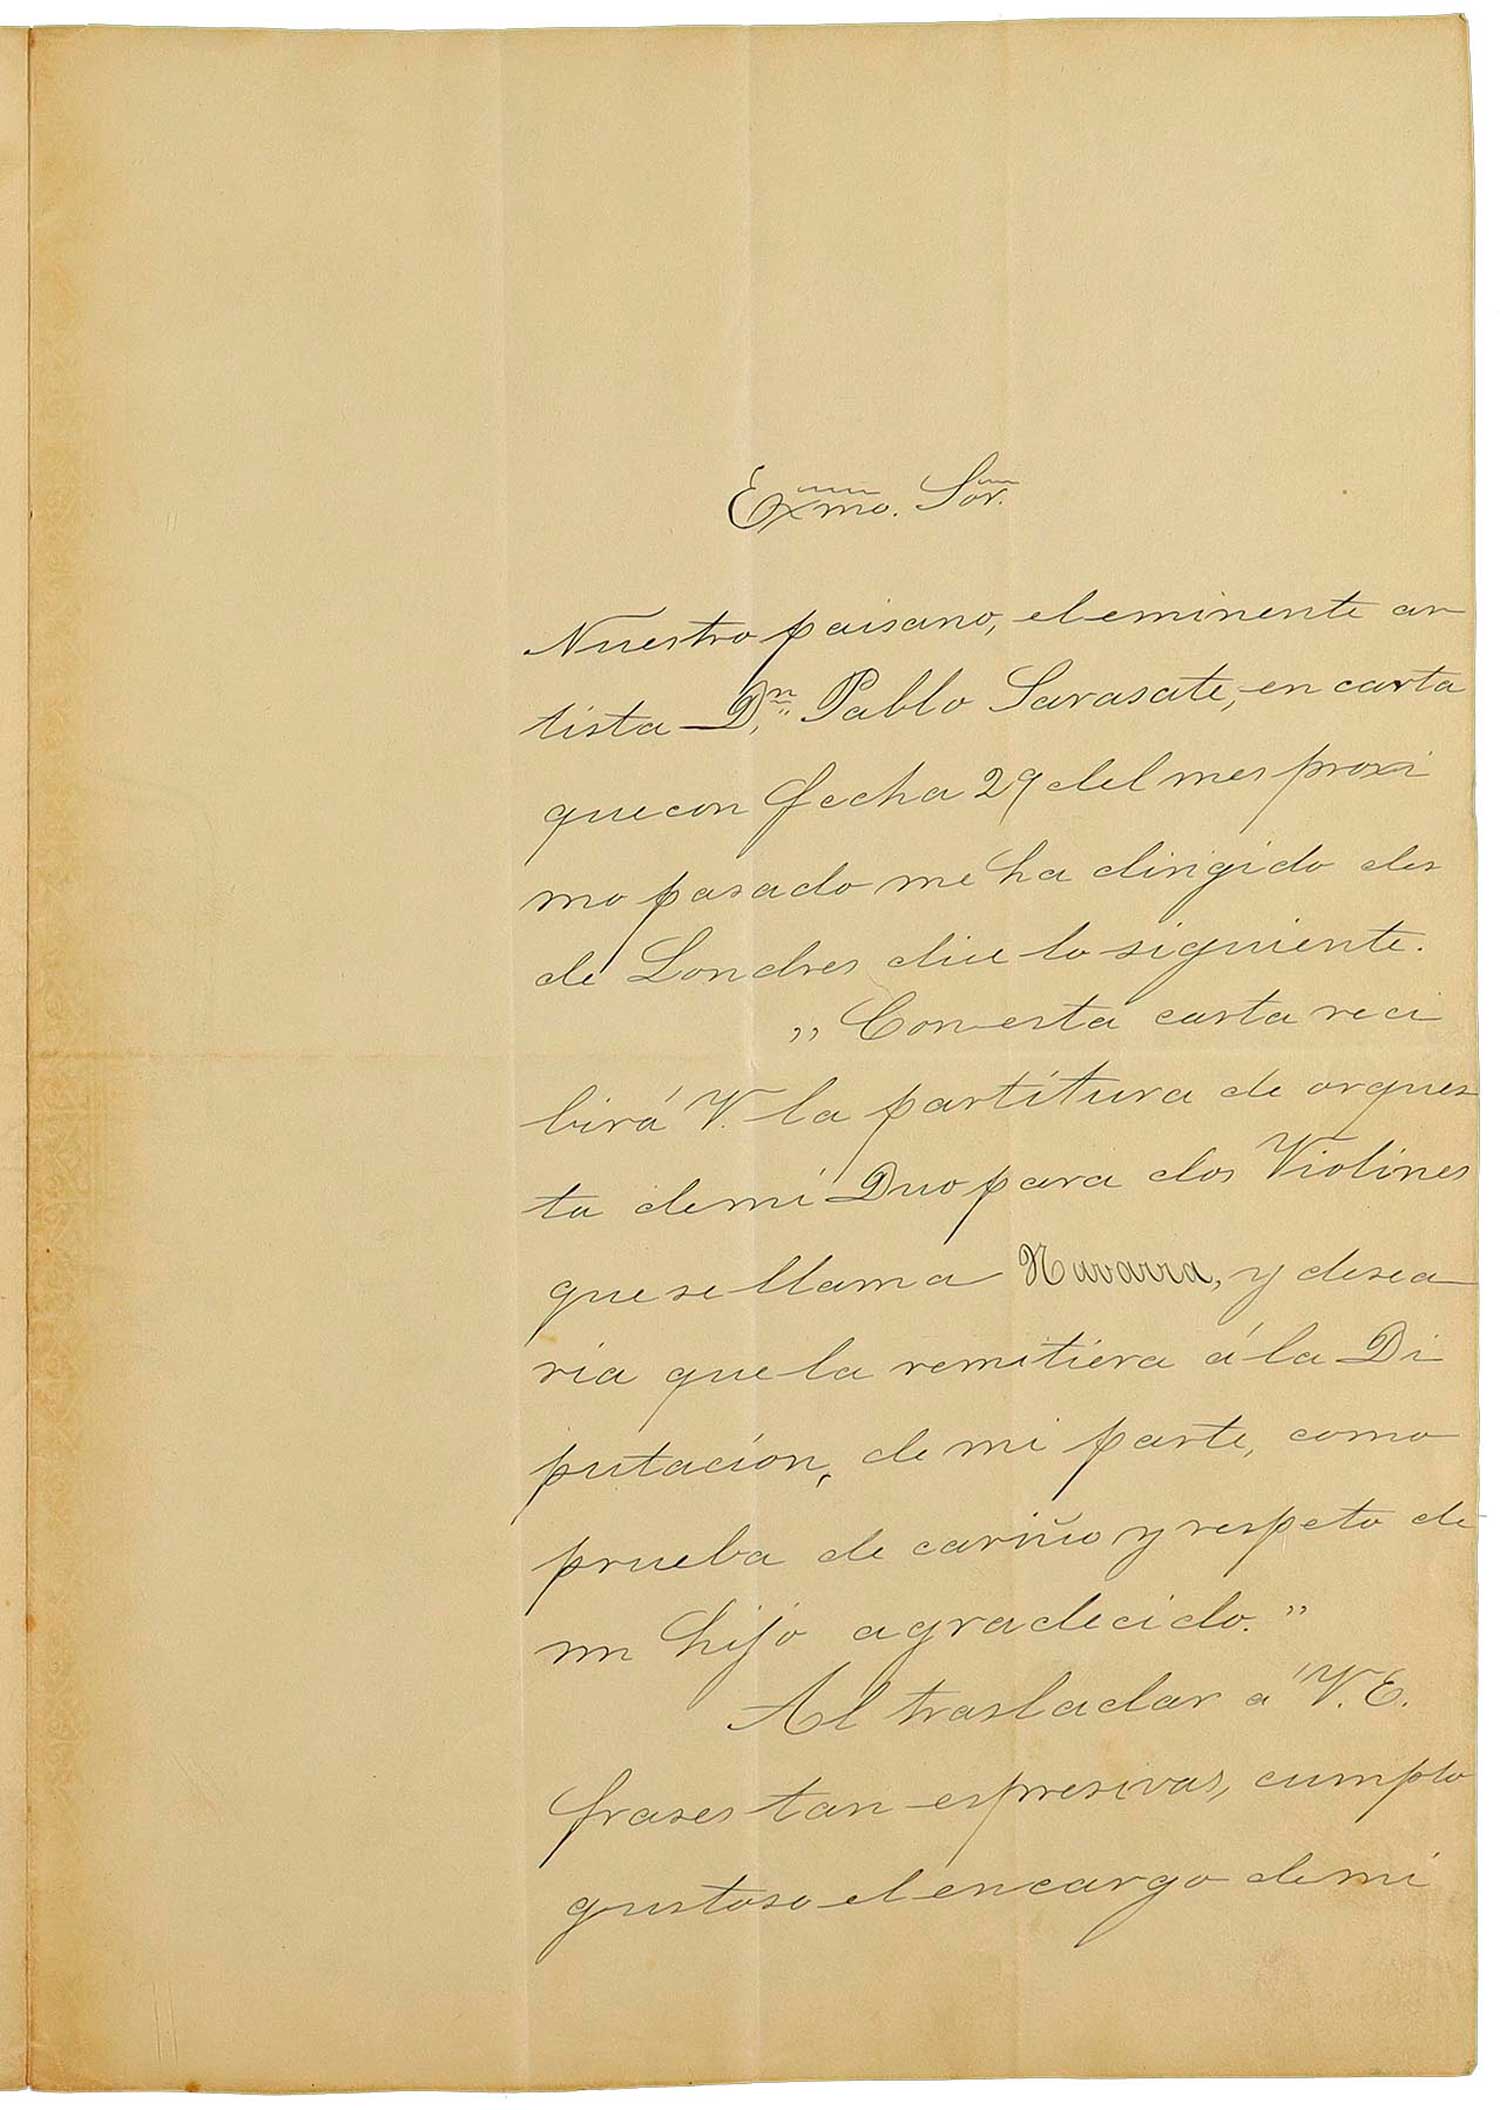 Exmo. Sor.
Nuestro paisano, el eminente ar
tista D.n Pablo Sarasate, en carta
que con fecha 29 del mes proxi
mo pasado me ha dirigido des
de Londres dice lo siguiente.
„ Con esta carta reci
birá V. la partitura de orques
ta de mi Duo para dos Violines
que se llama Navarra, y desea
ria que la remitiera á la Di
putacion, de mi parte, como
prueba de cariño y respeto de
un hijo agradecido.”
Al trasladar á V. E.
frases tan espresivas, cumplo
gustoso el encargo de mi